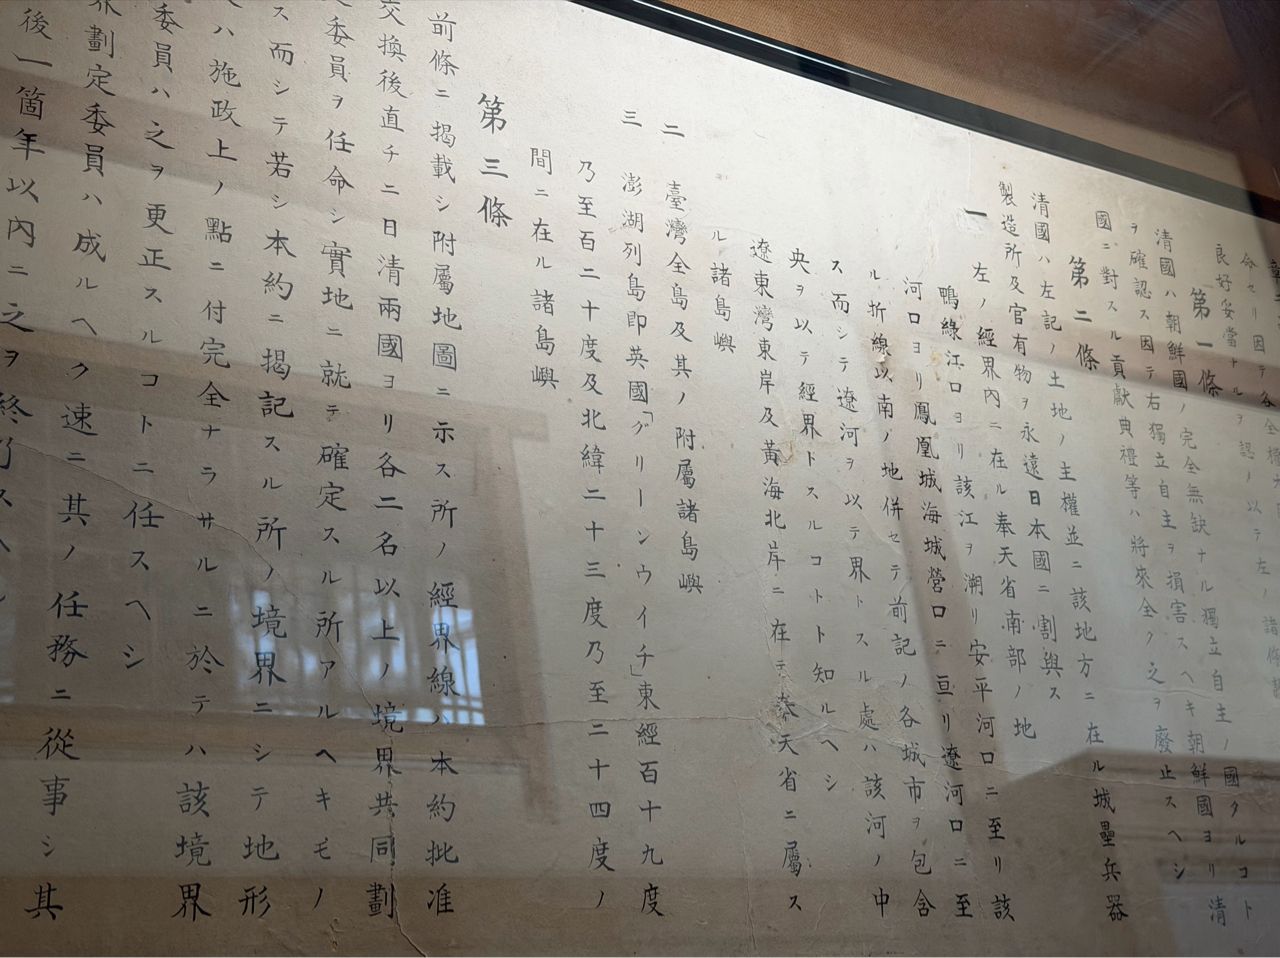 命セリ因テ各全權
良好妥當ナルヲ認メ以テ左ノ諸條
第一條
清國ハ朝鮮國ノ完全無缺ナル獨立自主ノ國タルコト
ヲ確認ス因テ右獨立自主ヲ損害スヘキ朝鮮國ヨリ清
國ニ對スル貢獻典禮等ハ將來全ク之ヲ廢止スヘシ
第二條
清國ハ左記ノ土地ノ主權並ニ該地方ニ在ル城壘兵器
製造所及官有物ヲ永遠日本國ニ割與ス
一 左ノ經界內ニ在ル奉天省南部ノ地
鴨綠江口ヨリ該江ヲ溯リ安平河口ニ至リ該
河口ヨリ鳳凰城海城營口ニ亘リ遼河口ニ至
ル折線以南ノ地併セテ前記ノ各城市ヲ包含
ス而シテ遼河ヲ以テ界トスル處ハ該河ノ中
央ヲ以テ經界トスルコトト知ルヘシ
遼東灣東岸及黃海北岸ニ在テ奉天省ニ屬ス
ル諸島嶼
二 臺灣全島及其ノ附屬諸島嶼
三 澎湖列島即英國「グリーンウイチ」東經百十九度
乃至百二十度及北緯二十三度乃至二十四度ノ
間ニ在ル諸島嶼
第三條
前條ニ揭載シ附屬地圖ニ示ス所ノ經界線ハ本約批准
交換後直チニ日清兩國ヨリ各二名以上ノ境界共同劃
委員ヲ任命シ實地ニ就テ確定スル所アルヘキモノ
ス而シテ若シ本約ニ揭記スル所ノ境界ニシテ地形
ハ施政上ノ點ニ付完全ナラサルニ於テハ該境界
委員ハ之ヲ更正スルコトニ任スヘシ
劃定委員ハ成ルヘク速ニ其ノ任務ニ從事シ其
後一箇年以內ニ之ヲ終